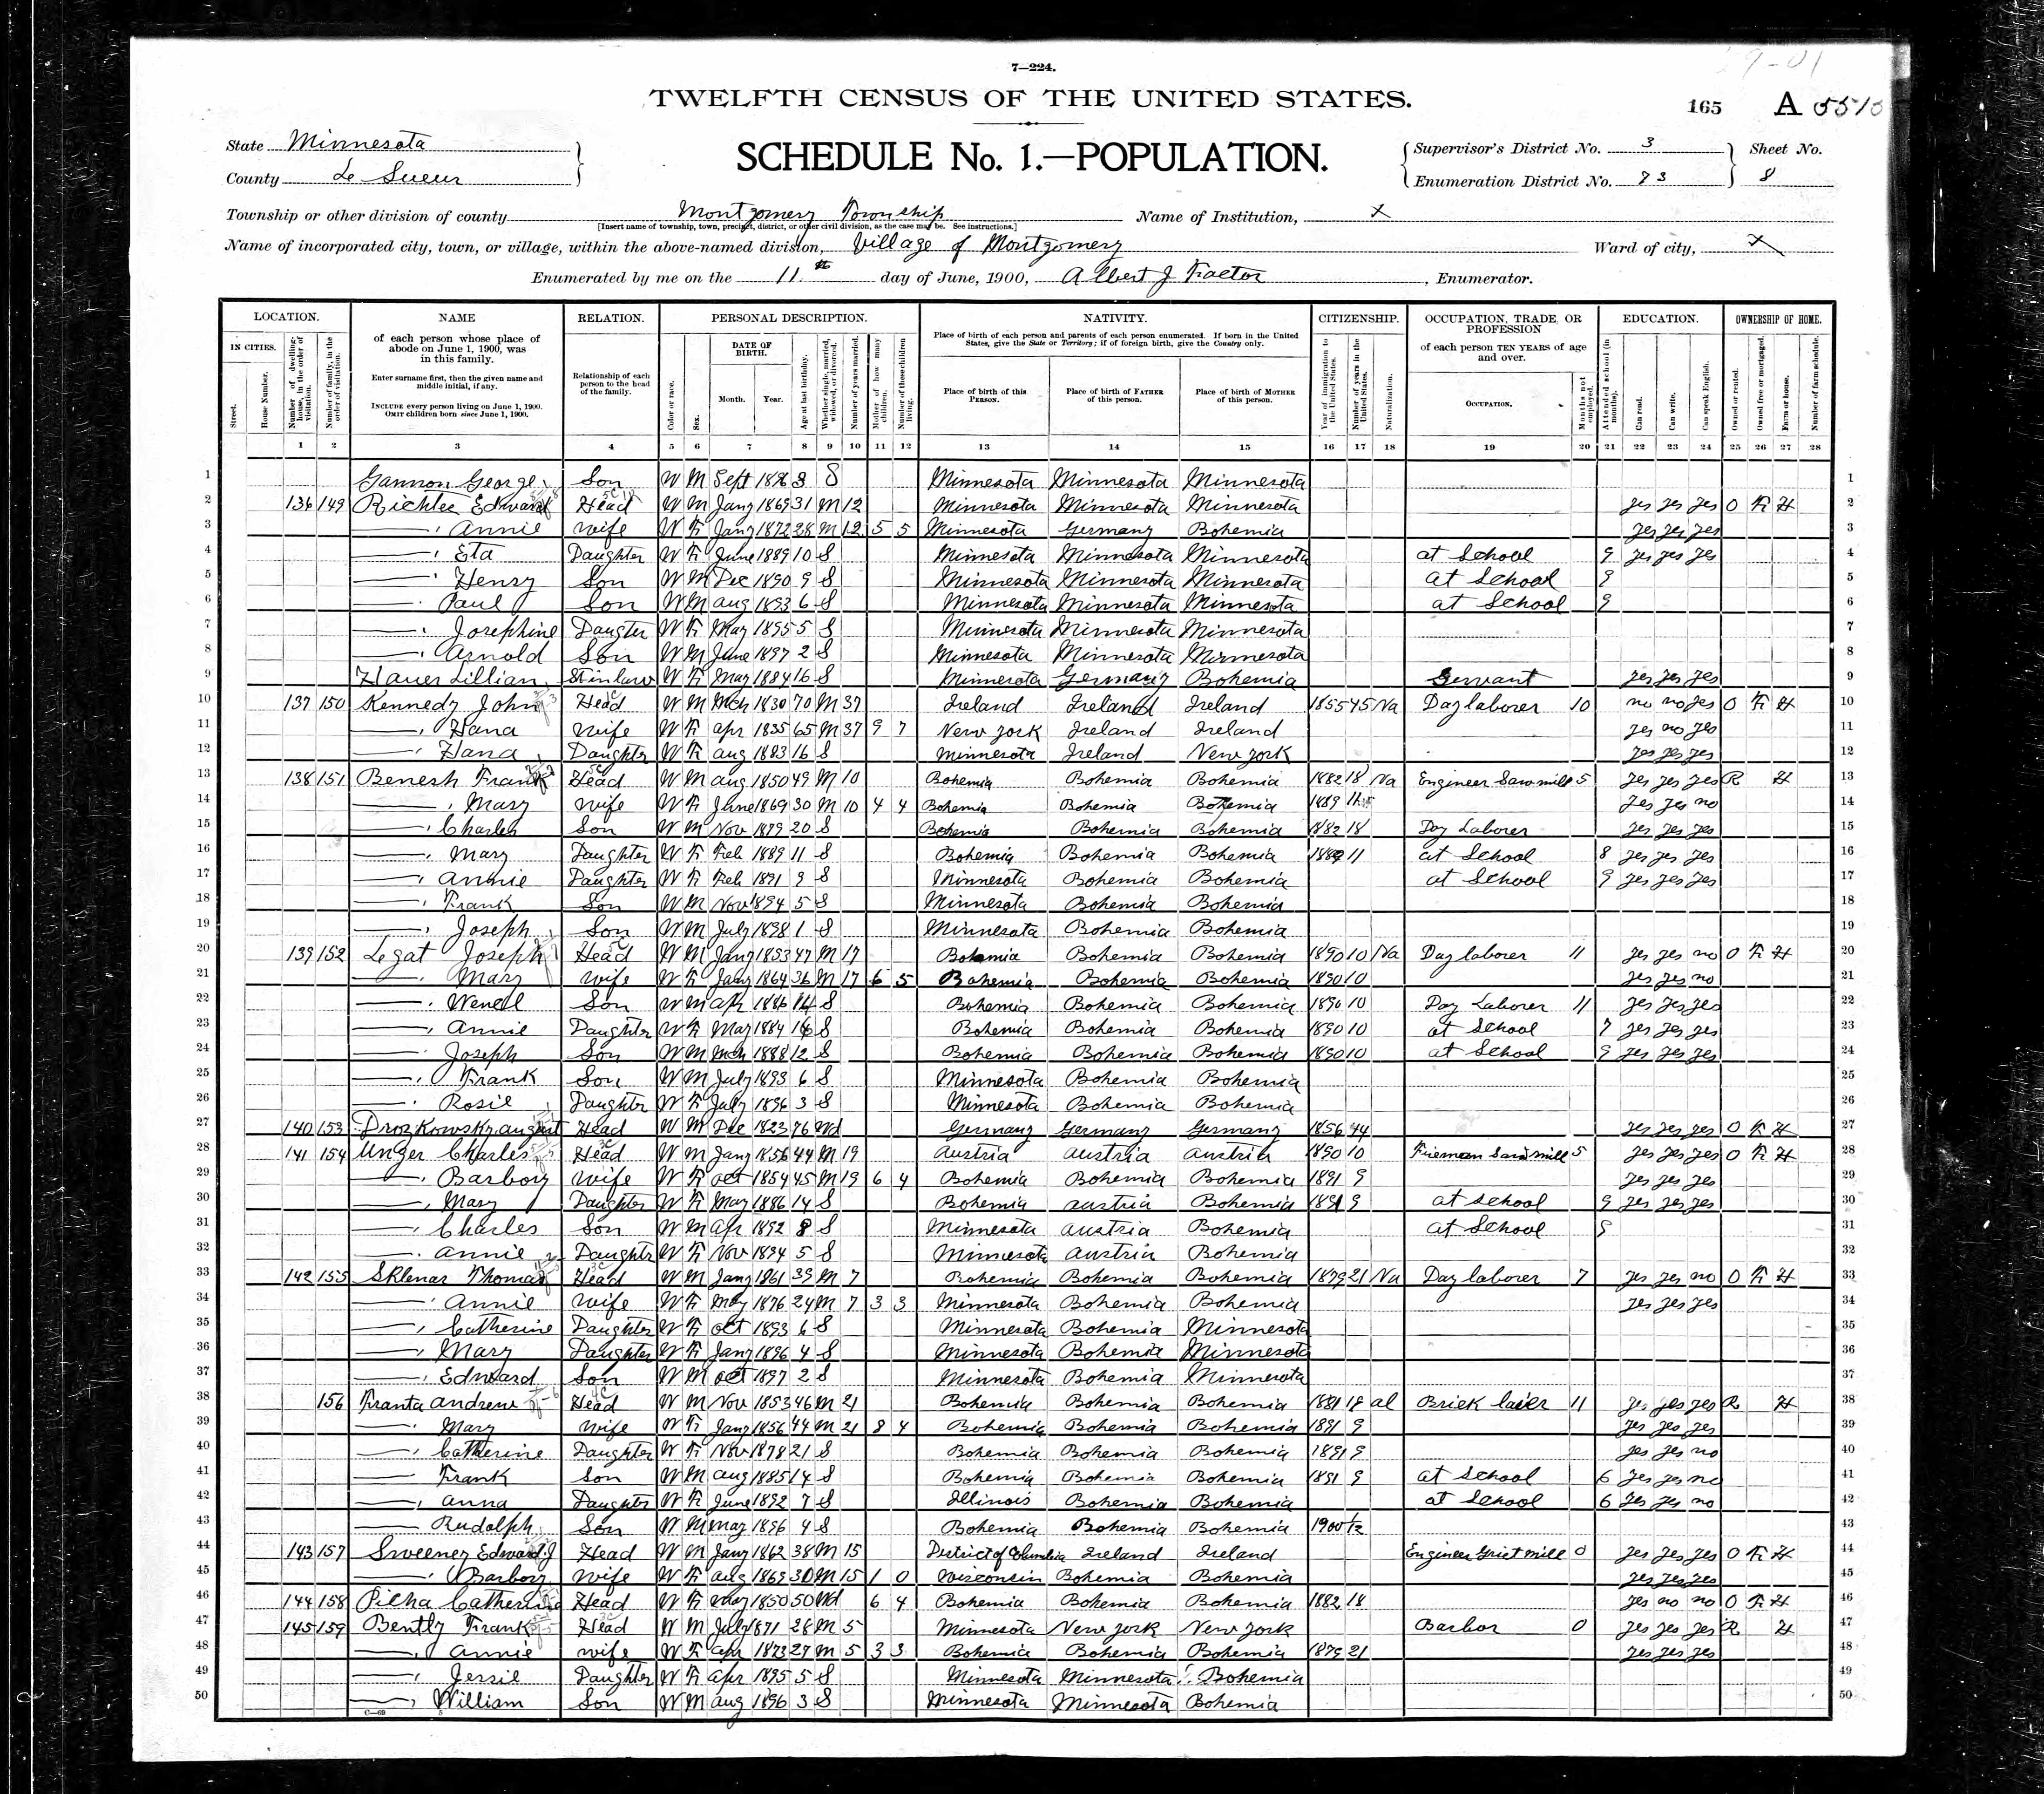 7—224.
TWELFTH CENSUS OF THE UNITED STATES.
165 A 5510
State Minnesota
County Le Sueur
SCHEDULE No. 1.—POPULATION.
Supervisor's District No. 3 Sheet No.
Enumeration District No. 73 8
Township or other division of county Montgomery Township Name of Institution, X
[Insert name of township, town, precinct, district, or other civil division, as the case may be. See instructions.]
Name of incorporated city, town, or village, within the above-named division, Village of Montgomery Ward of city, X
Enumerated by me on the 11th day of June, 1900, Albert J Factor, Enumerator.
LOCATION. NAME RELATION. PERSONAL DESCRIPTION. NATIVITY. CITIZENSHIP. OCCUPATION, TRADE, OR PROFESSION EDUCATION. OWNERSHIP OF HOME.
IN CITIES. Street. House Number. Number of dwelling-house, in the order of visitation. Number of family, in the order of visitation.
of each person whose place of abode on June 1, 1900, was in this family.
Enter surname first, then the given name and middle initial, if any.
INCLUDE every person living on June 1, 1900. OMIT children born since June 1, 1900.
Relationship of each person to the head of the family.
Color or race. Sex. DATE OF BIRTH. Month. Year. Age at last birthday. Whether single, married, widowed, or divorced. Number of years married. Mother of how many children. Number of these children living.
Place of birth of each person and parents of each person enumerated. If born in the United States, give the State or Territory; if of foreign birth, give the Country only.
Place of birth of this PERSON. Place of birth of FATHER of this person. Place of birth of MOTHER of this person.
Year of immigration to the United States. Number of years in the United States. Naturalization.
of each person TEN YEARS of age and over.
OCCUPATION. Months not employed. Attended school (in months). Can read. Can write. Can speak English. Owned or rented. Owned free or mortgaged. Farm or house. Number of farm schedule.
1 2 3 4 5 6 7 8 9 10 11 12 13 14 15 16 17 18 19 20 21 22 23 24 25 26 27 28
1 Gannon George Son W M Sept 1896 3 S Minnesota Minnesota Minnesota 1
2 136 149 Richter Edward Head W M Jany 1869 31 M 12 Minnesota Minnesota Minnesota yes yes yes O F H 2
3 Annie wife W F Jany 1872 28 M 12 5 5 Minnesota Germany Bohemia yes yes yes 3
4 Eta Daughter W F June 1889 10 S Minnesota Minnesota Minnesota at School 9 yes yes yes 4
5 Henry Son W M Dec 1890 9 S Minnesota Minnesota Minnesota at School 9 5
6 Paul Son W M aug 1893 6 S Minnesota Minnesota Minnesota at School 9 6
7 Josephine Daugter W F May 1895 5 S Minnesota Minnesota Minnesota 7
8 Arnold Son W M June 1897 2 S Minnesota Minnesota Minnesota 8
9 Hauer Lillian Sinlaw W F May 1884 16 S Minnesota Germany Bohemia Servant yes yes yes 9
10 137 150 Kennedy John Head W M Mch 1830 70 M 37 Ireland Ireland Ireland 1855 45 Na Day laborer 10 no no yes O F H 10
11 Hana wife W F apr 1835 65 M 37 9 7 New York Ireland Ireland yes no yes 11
12 Hana Daughter W F aug 1883 16 S Minnesota Ireland New York yes yes yes 12
13 138 151 Benesh Frank Head W M aug 1850 49 M 10 Bohemia Bohemia Bohemia 1882 18 Na Engineer Sawmill 5 yes yes yes R H 13
14 Mary wife W F June 1869 30 M 10 4 4 Bohemia Bohemia Bohemia 1889 11 yes yes no 14
15 Charles Son W M Nov 1879 20 S Bohemia Bohemia Bohemia 1882 18 Day Laborer yes yes yes 15
16 Mary Daughter W F Feb 1889 11 S Bohemia Bohemia Bohemia 1889 11 at School 8 yes yes yes 16
17 Annie Daughter W F Feb 1891 9 S Minnesota Bohemia Bohemia at School 9 yes yes yes 17
18 Frank Son W M Nov 1894 5 S Minnesota Bohemia Bohemia 18
19 Joseph Son W M July 1898 1 S Minnesota Bohemia Bohemia 19
20 139 152 Legat Joseph Head W M Jany 1853 47 M 17 Bohemia Bohemia Bohemia 1890 10 Na Day laborer 11 yes yes no O F H 20
21 Mary wife W F Jany 1864 36 M 17 6 5 Bohemia Bohemia Bohemia 1890 10 yes yes no 21
22 Wencl Son W M apr 1886 14 S Bohemia Bohemia Bohemia 1890 10 Day Laborer 11 yes yes yes 22
23 Annie Daughter W F May 1884 16 S Bohemia Bohemia Bohemia 1890 10 at School 7 yes yes yes 23
24 Joseph Son W M Mch 1888 12 S Bohemia Bohemia Bohemia 1890 10 at School 9 yes yes yes 24
25 Frank Son W M July 1893 6 S Minnesota Bohemia Bohemia 25
26 Rosie Daughter W F July 1896 3 S Minnesota Bohemia Bohemia 26
27 140 153 Drozkowsky august Head W M Dec 1823 76 Wd Germany Germany Germany 1856 44 yes yes yes O F H 27
28 141 154 Unger Charles Head W M Jany 1856 44 M 19 Austria Austria Austria 1890 10 Fireman Sawmill 5 yes yes yes O F H 28
29 Barbory wife W F oct 1854 45 M 19 6 4 Bohemia Bohemia Bohemia 1891 9 yes yes yes 29
30 Mary Daughter W F May 1886 14 S Bohemia Austria Bohemia 1891 9 at School 9 yes yes yes 30
31 Charles Son W M apr 1892 8 S Minnesota Austria Bohemia at School 9 31
32 Annie Daughtr W F Nov 1894 5 S Minnesota Austria Bohemia 32
33 142 155 Sklenar Thomas Head W M Jany 1861 39 M 7 Bohemia Bohemia Bohemia 1879 21 Na Day laborer 7 yes yes no O F H 33
34 Annie wife W F May 1876 24 M 7 3 3 Minnesota Bohemia Bohemia yes yes yes 34
35 Catherine Daughter W F oct 1893 6 S Minnesota Bohemia Minnesota 35
36 Mary Daughter W F Jany 1896 4 S Minnesota Bohemia Minnesota 36
37 Edward Son W M oct 1897 2 S Minnesota Bohemia Minnesota 37
38 156 Franta Andrew Head W M Nov 1853 46 M 21 Bohemia Bohemia Bohemia 18 al Brick laier 11 yes yes yes R H 38
39 Mary wife W F Jany 1856 44 M 21 8 4 Bohemia Bohemia Bohemia 1891 9 yes yes yes 39
40 Catherine Daughter W F Nov 1878 21 S Bohemia Bohemia Bohemia 1891 9 yes yes no 40
41 Frank Son W M aug 1885 14 S Bohemia Bohemia Bohemia 1891 9 at School 6 yes yes no 41
42 Anna Daughter W F June 1892 7 S Illinois Bohemia Bohemia at School 6 yes yes no 42
43 Rudolph Son W M May 1896 4 S Bohemia Bohemia Bohemia 1900 43
44 143 157 Sweeney Edward J Head W M Jany 1862 38 M 15 District of Columbia Ireland Ireland Engineer Grist mill 0 yes yes yes O F H 44
45 Barbory wife W F aug 1869 30 M 15 1 0 Wisconsin Bohemia Bohemia yes yes yes 45
46 144 158 Picha Catherine Head W F May 1850 50 Wd 6 4 Bohemia Bohemia Bohemia 1882 18 yes no no O F H 46
47 145 159 Bently Frank Head W M July 1871 28 M 5 Minnesota New York New York Barbor 0 yes yes yes R H 47
48 Annie wife W F apr 1873 27 M 5 3 3 Bohemia Bohemia Bohemia 1879 21 yes yes yes 48
49 Jessie Daughter W F apr 1895 5 S Minnesota Minnesota Bohemia 49
50 William Son W M aug 1896 3 S Minnesota Minnesota Bohemia 50
C—69